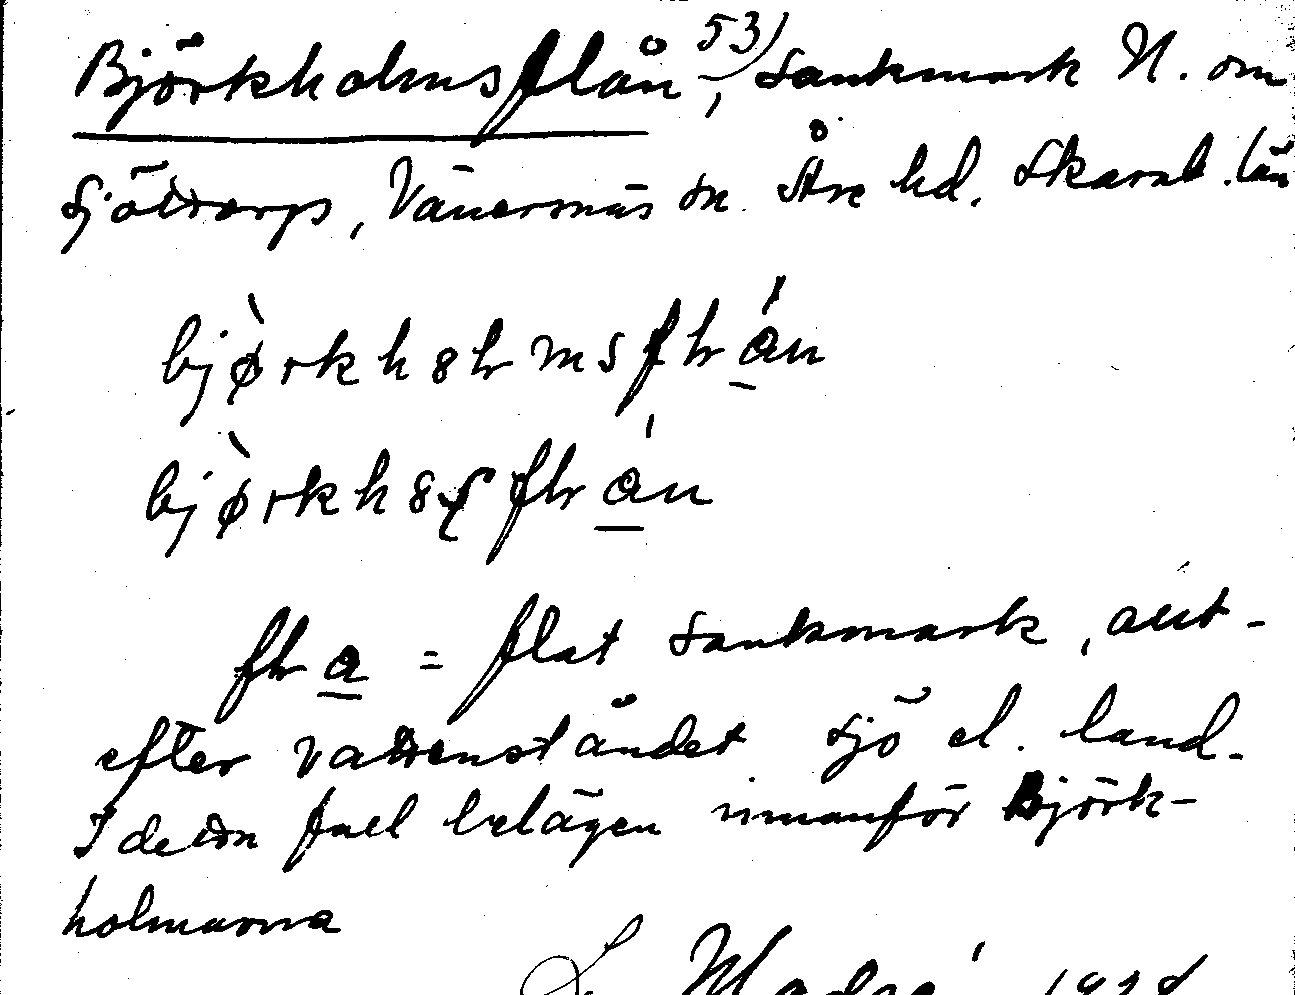 Björkholmsflån 53), Sankmark N. om
Sjötorp, Vänersnäs sn Åse hd. Skarab. län
bjørkhołmsfłån
bjørkho fłån
fła = flat sankmark, allt-
efter vattenståndet sjö el. land.
I detta fall belägen innanför Björk-
holmarna